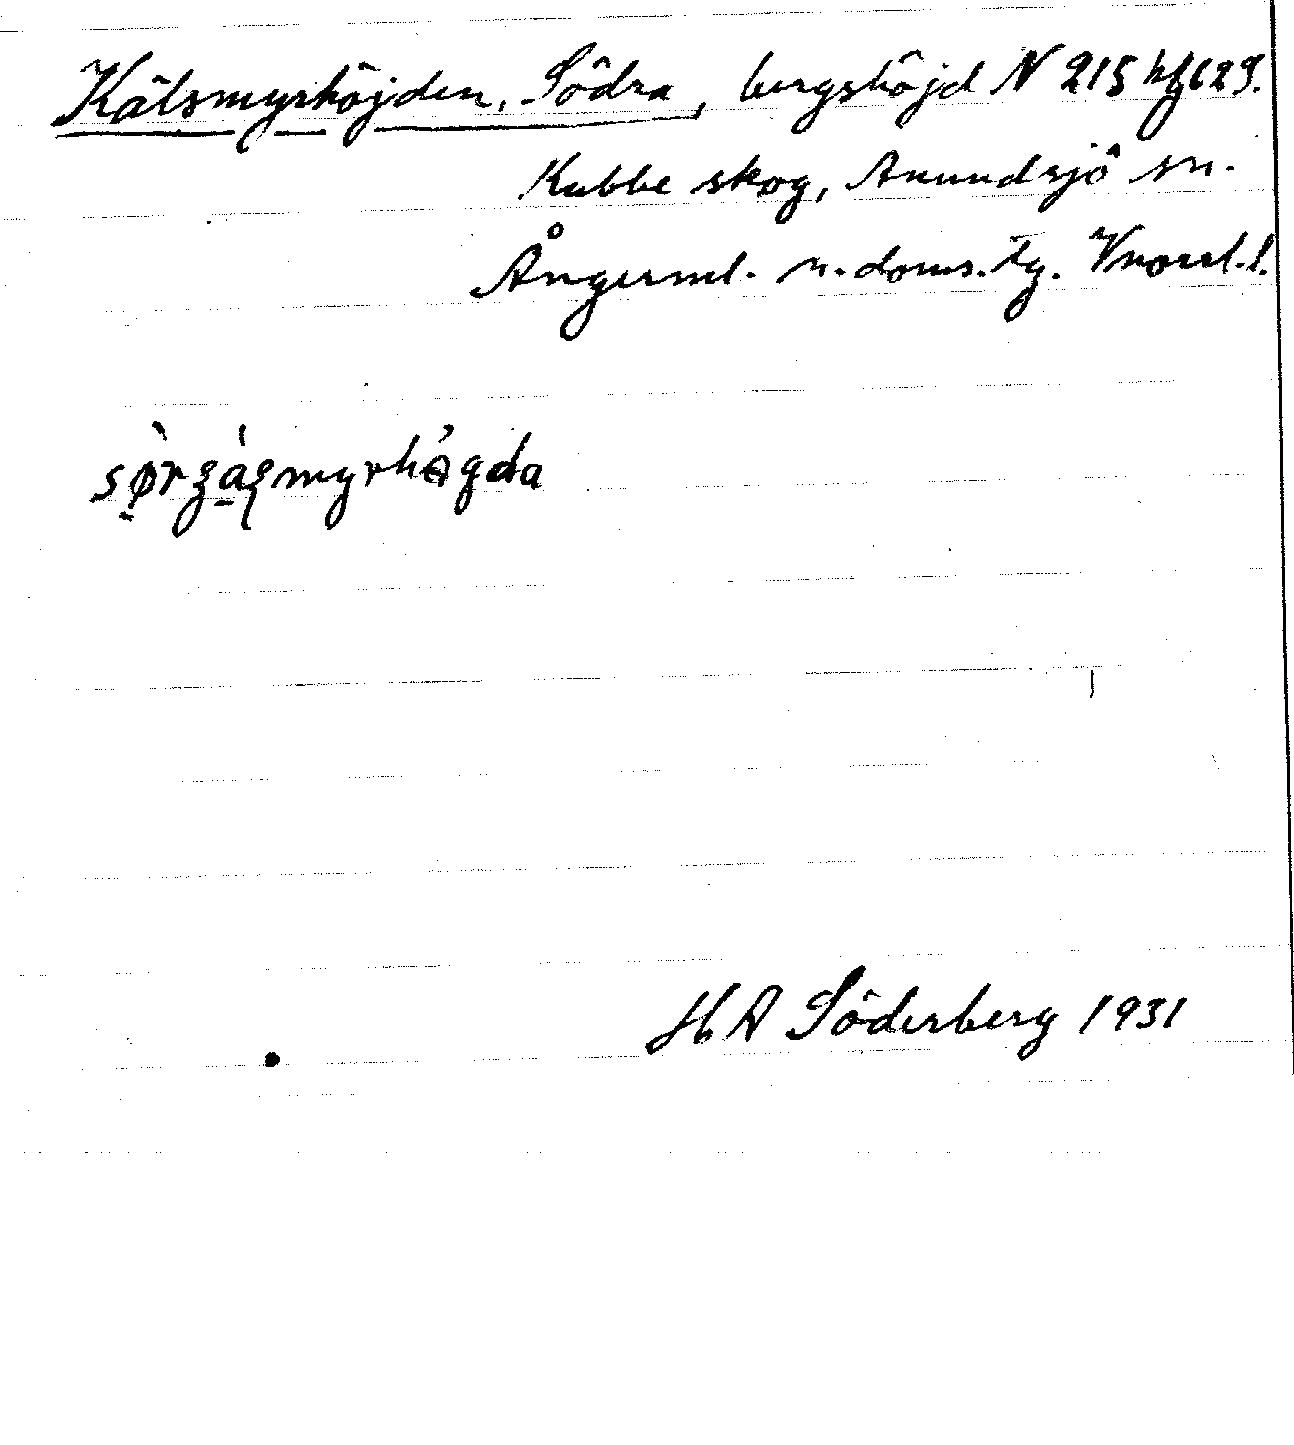 Kälsmyrhöjden, Södra, bergshöjd N 215 hg629.
Kubbe skog, Anundsjö sn.
Ångerml. n. doms. tg. Vnorrl. l.
H A Söderberg 1931